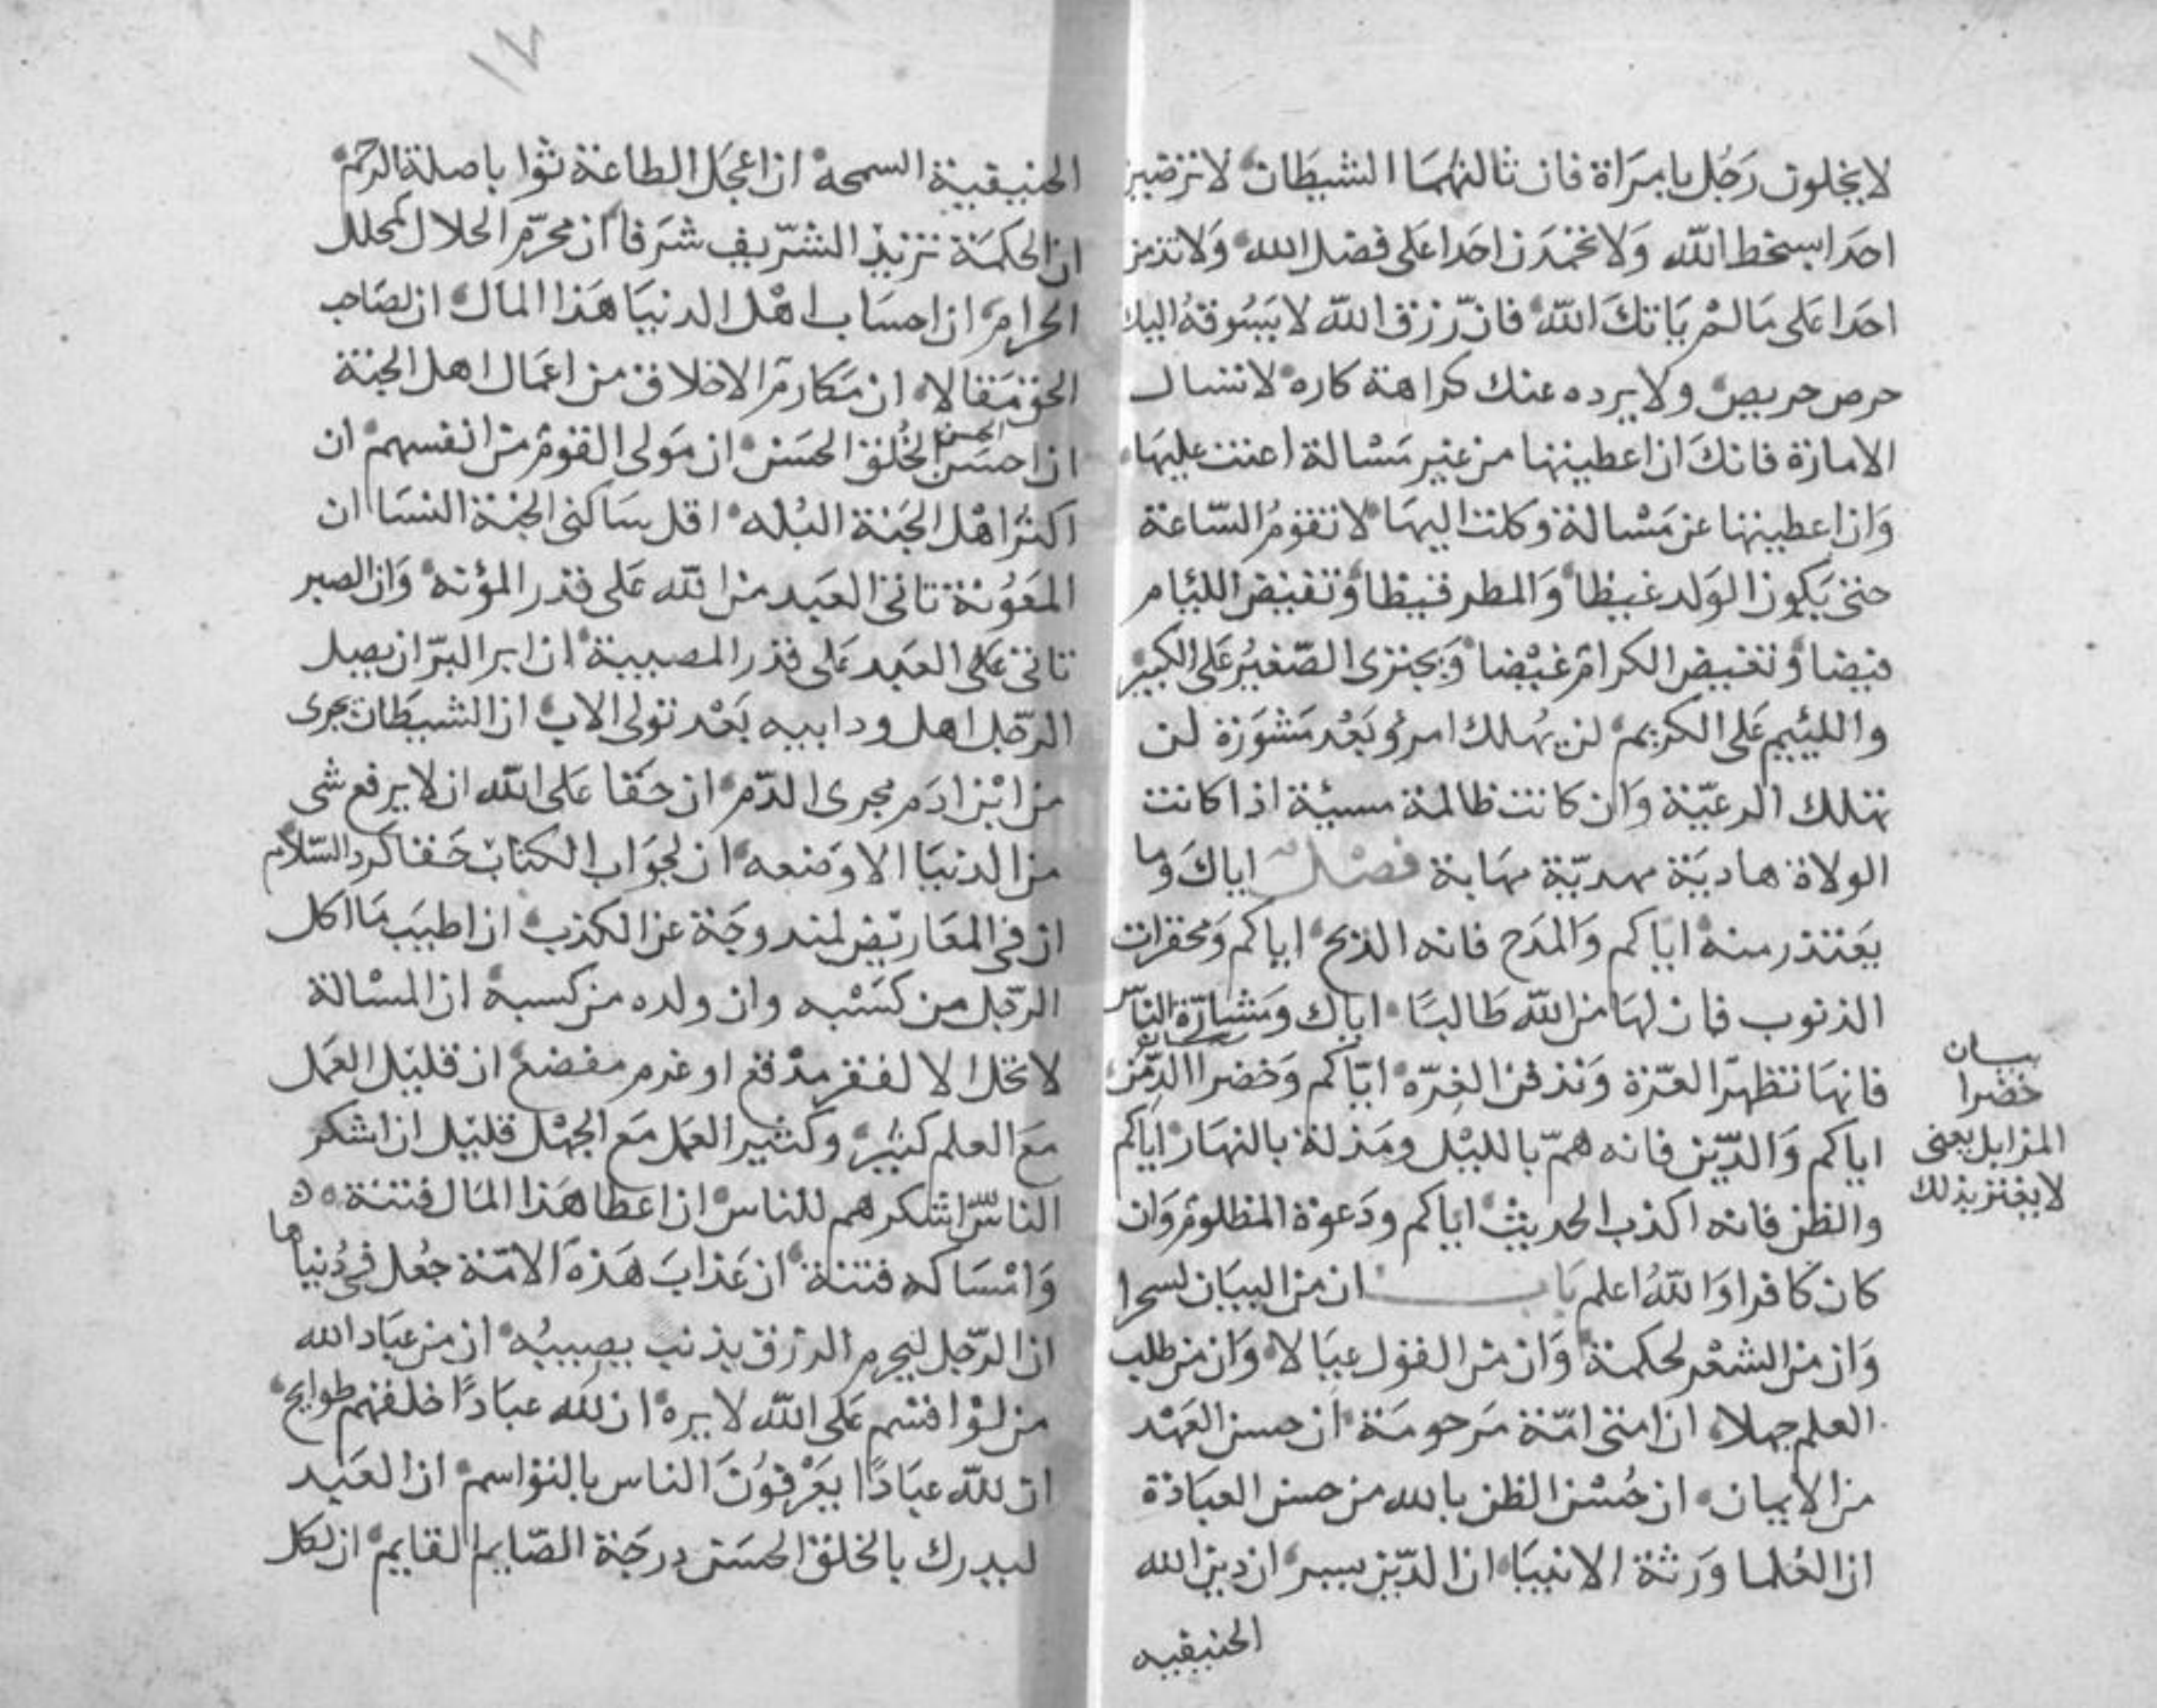 لا يخلون رجل بامراة فان ثالثهما الشيطان لا ترضين
احدا بسخط الله ولا تحمدن احدا على فضل الله ولا تذمن
احدا على ما لم ياتك الله فان رزق الله لا يسوقه اليك
حرص حريص ولا يرده عنك كراهة كاره لا تسال
الامارة فانك ان اعطيتها من غير مسالة اعنت عليها
وان اعطيتها عن مسالة وكلت اليها لا تقوم الساعة
حتى يكون الولد غيظا والمطر قيظا وتفيض الليام
فيضا وتغيض الكرام غيضا ويجترى الصغير على الكبير
واللييم على الكريم لن يهلك امرؤ بعد مشورة لن
تهلك الرعية وان كانت ظالمة مسيئة اذا كانت
الولاة هادية مهدية فصل اياك وما
يعتذر منه اياكم والمدح فانه الذبح اياكم ومحقرات
الذنوب فان لها من الله طالبا اياك ومشارة الناس
فانها تظهر العرة وتدفن الغرة اياكم وخضرا الدمن
اياكم والدين فانه هم بالليل ومذلة بالنهار اياكم
والظن فانه اكذب الحديث اياكم ودعوة المظلوم وان
كان كافرا والله اعلم باب ان من البيان لسحرا
وان من الشعر لحكمة وان من القول عيالا وان من طلب
العلم جهلا ان امتى امة مرحومة ان حسن العهد
من الايمان ان حسن الظن بالله من حسن العبادة
ان العلما ورثة الانبيا ان الدين يسر ان دين الله
الحنيفيه
بيان
خضرا
المزابل يعنى
لا يغتر بذلك
١٧
الحنيفية السمحه ان اعجل الطاعة ثوابا صلة الرحم
ان الحكمة تزيد الشريف شرفا ان محرم الحلال كمحلل
الحرام ان احساب اهل الدنيا هذا المال ان لصاحب
الحق مقالا ان مكارم الاخلاق من اعمال اهل الجنة
ان احسن الحسن الخلق الحسن ان مولى القوم من انفسهم ان
اكثر اهل الجنة البله اقل ساكنى الجنة النسا ان
المعونة تاتى العبد من الله على قدر المؤنه وان الصبر
تاتى على العبد على قدر المصيبة ان ابر البر ان يصل
الرجل اهل ود ابيه بعد تولى الاب ان الشيطان يجرى
من ابن ادم مجرى الدم ان حقا على الله ان لا يرفع شى
من الدنيا الا وضعه ان لجواب الكتاب حقا كرد السلام
ان فى المعاريض لمندوحة عن الكذب ان اطيب ما اكل
الرجل من كسبه وان ولده من كسبه ان المسالة
لا تحل الا لفقر مدقع او غرم مفضع ان قليل العمل
مع العلم كثير وكثير العمل مع الجهل قليل ان اشكر
الناس اشكرهم للناس ان اعطا هذا المال فتنة
وامساكه فتنة ان عذاب هذه الامة جعل فى دنياها
ان الرجل ليحرم الرزق بذنب يصيبه ان من عباد الله
من لو اقسم على الله لابره ان لله عبادا خلقهم لحوايج
ان لله عبادا يعرفون الناس بالتواسم ان العبد
ليدرك بالخلق الحسن درجة الصايم القايم ان لكل